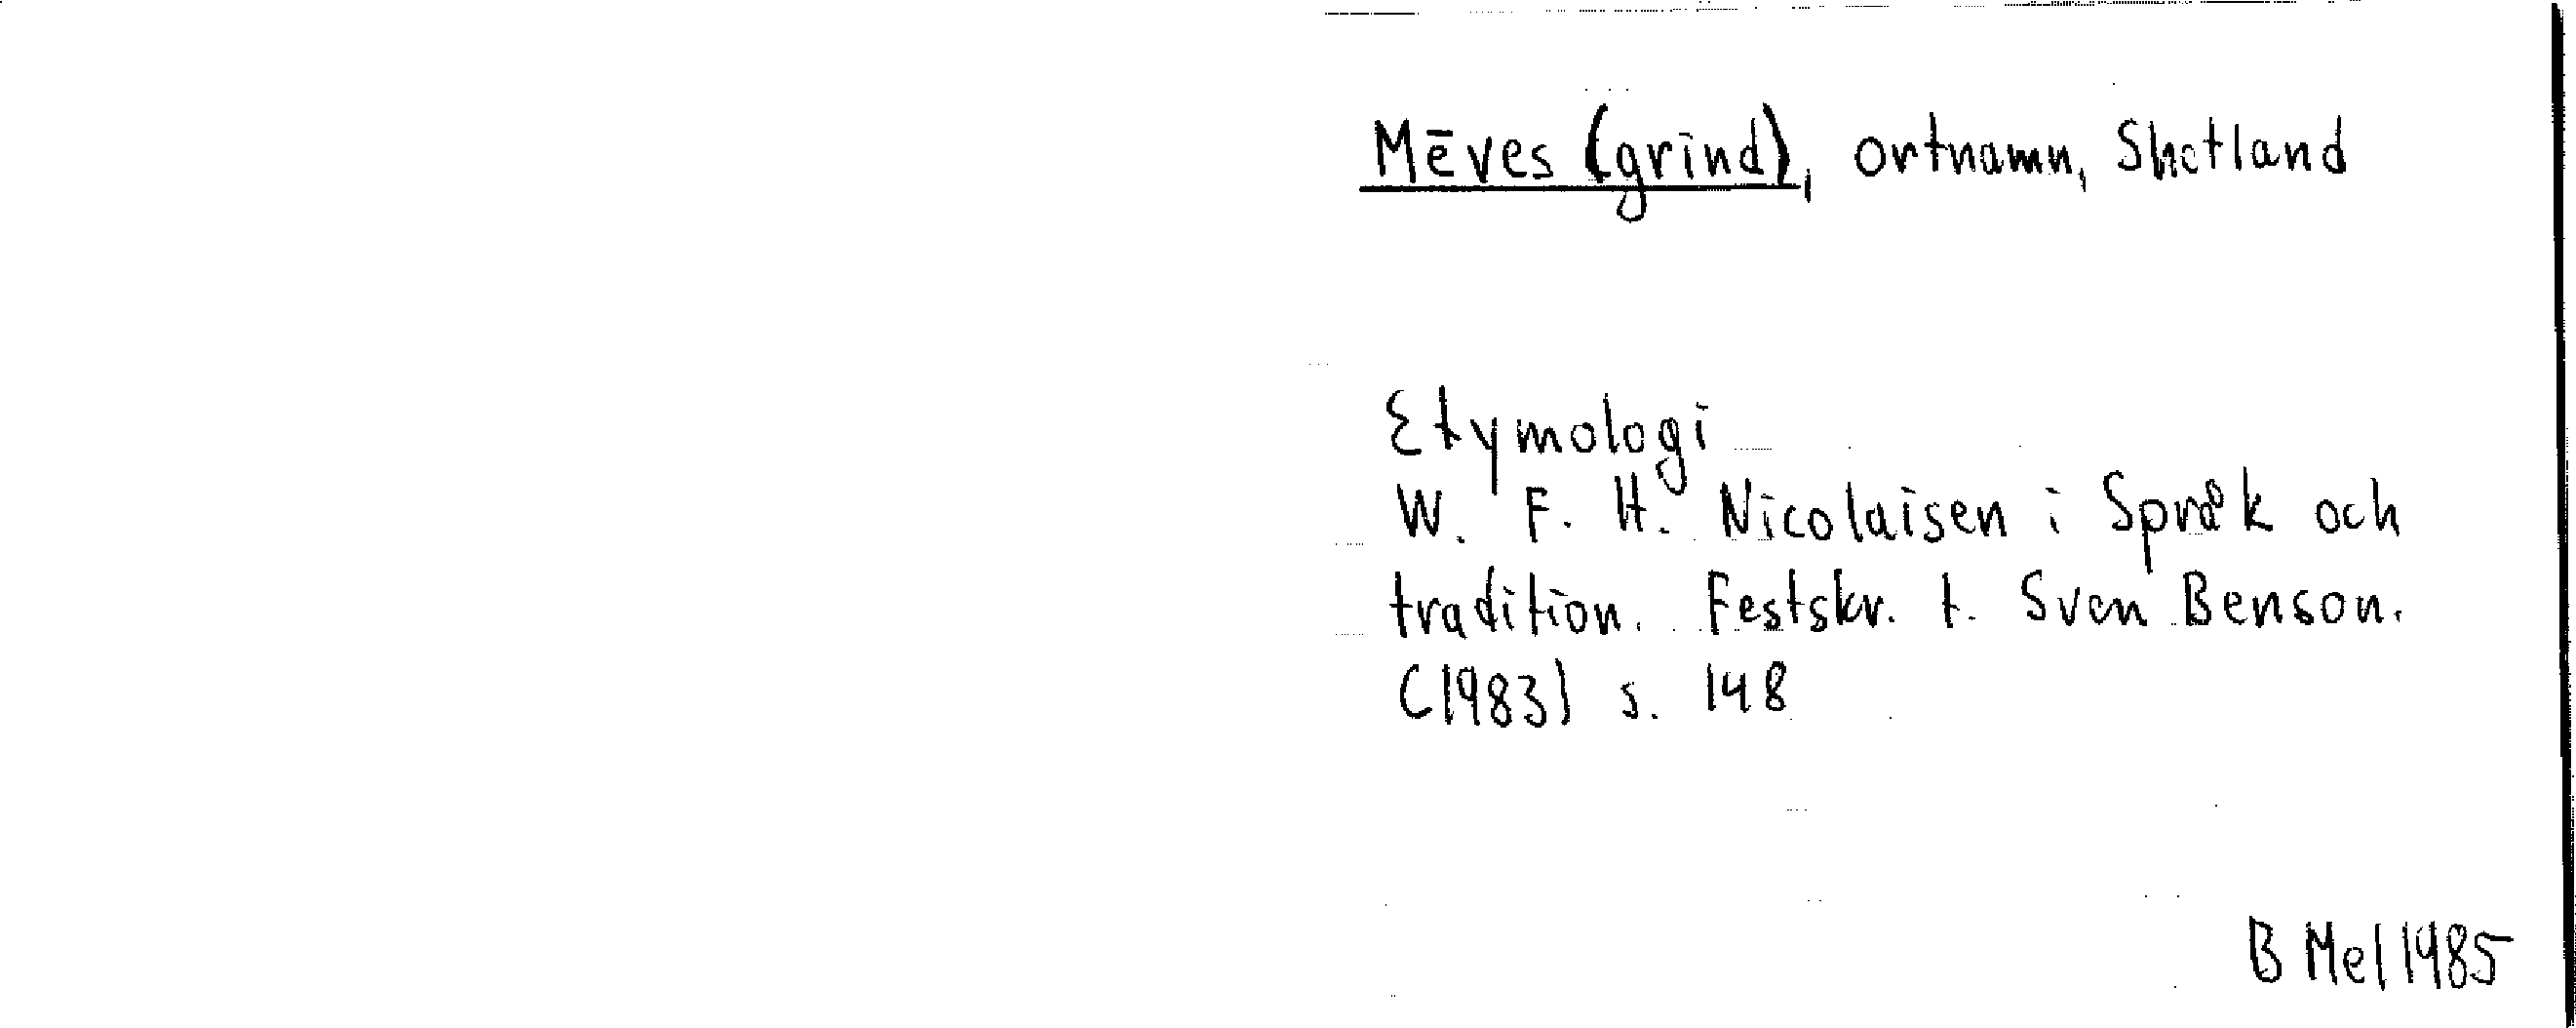 Mēves (grind), ortnamn, Shetland
Etymologi
W. F. H. Nicolaisen i Språk och
tradition. Festskr. t. Sven Benson.
(1983) s. 148
B Mel 1985